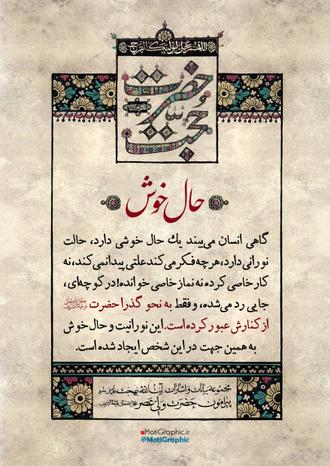 اللهم عجل لولیک الفرج
حضرت حجت
حال خوش
گاهی انسان می‌بیند یك حال خوشی دارد، حالت
نورانی دارد، هرچه فکر می‌کند علتی پیدا نمی‌کند، نه
کار خاصی کرده نه نماز خاصی خوانده! در کوچه‌ای،
جایی رد می‌شده، و فقط به نحو گذرا حضرت
از کنارش عبور کرده است. این نورانیت و حال خوش
به همین جهت در این شخص ایجاد شده است.
مجموعه بیانات و اشارات آیت‌الله بهجت
پیرامون حضرت ولی عصر
MotiGraphic.ir
@MotiGraphic